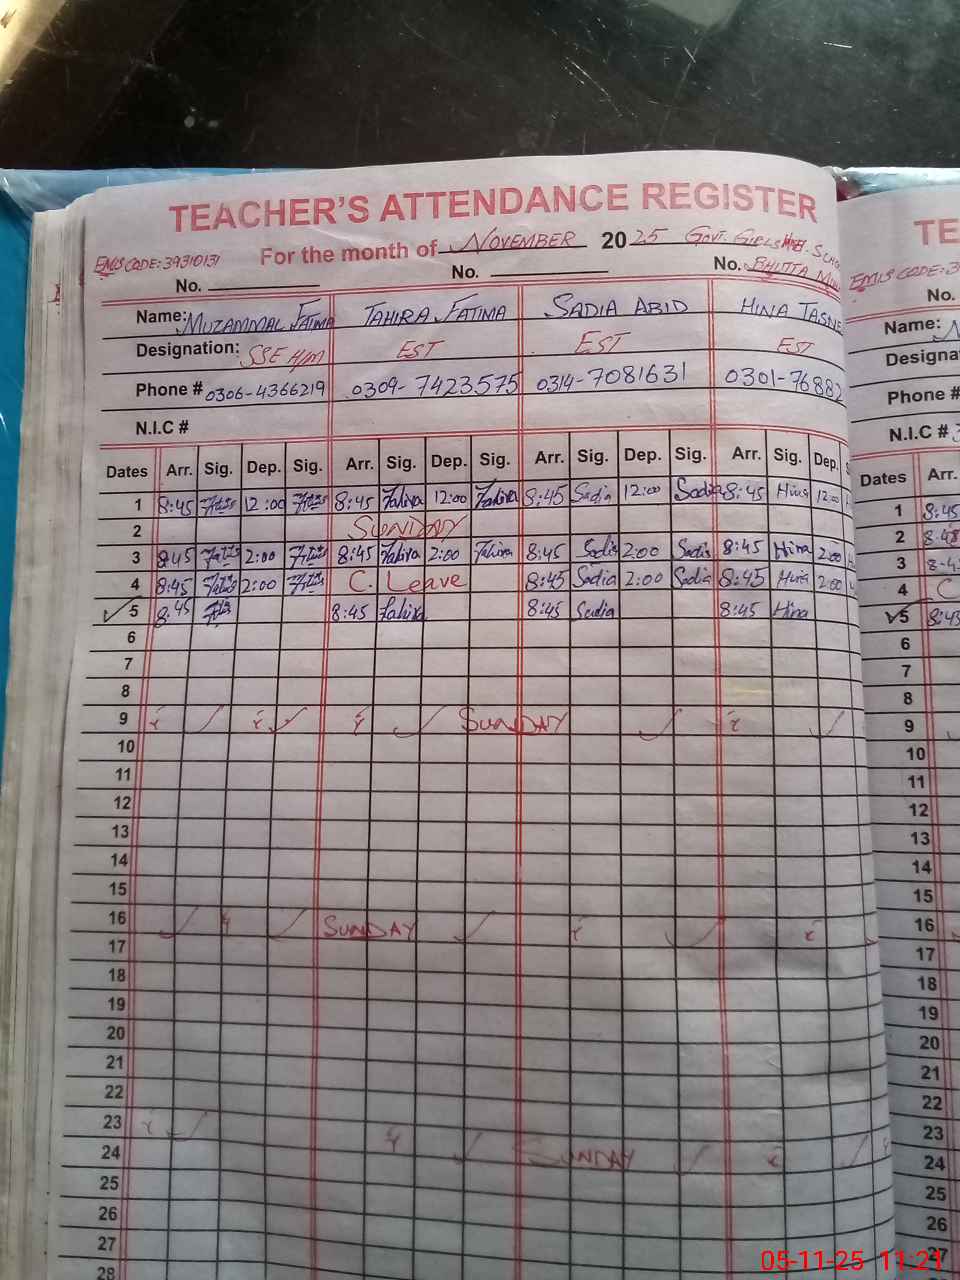 TEACHER'S ATTENDANCE REGISTER
For the month of NOVEMBER 2025 GOVT. GIRLS
EMIS CODE: 39310131
No. No. No. BHITTA
Name: MUZAMMAL FATIMA TAHIRA FATIMA SADIA ABID HINA TASNE
Designation: SSE H/M EST EST EST
Phone # 0306-4366219 0309-7423575 0314-7081631 0301-76882
N.I.C #
Dates Arr. Sig. Dep. Sig. Arr. Sig. Dep. Sig. Arr. Sig. Dep. Sig. Arr. Sig. Dep. S
1 8:45 12:00 8:45 Tahira 12:00 Tahira 8:45 Sadia 12:00 Sadia 8:45 Hina 12:00
2 SUNDAY
3 8:45 2:00 8:45 Tahira 2:00 Tahira 8:45 Sadia 2:00 Sadia 8:45 Hina 2:00
4 8:45 2:00 C. Leave 8:45 Sadia 2:00 Sadia 8:45 Hina 2:00
5 8:45 8:45 Tahira 8:45 Sadia 8:45 Hina
6
7
8
9 SUNDAY
10
11
12
13
14
15
16 SUNDAY
17
18
19
20
21
22
23
24 SUNDAY
25
26
27
28
TE
EMIS CODE: 3
No.
Name: N
Designa
Phone #
N.I.C # 3
Dates Arr.
1 8:45
2 8:45
3 8:45
4 C
5 8:45
6
7
8
9
10
11
12
13
14
15
16
17
18
19
20
21
22
23
24
25
26
27
05-11-25 11:21